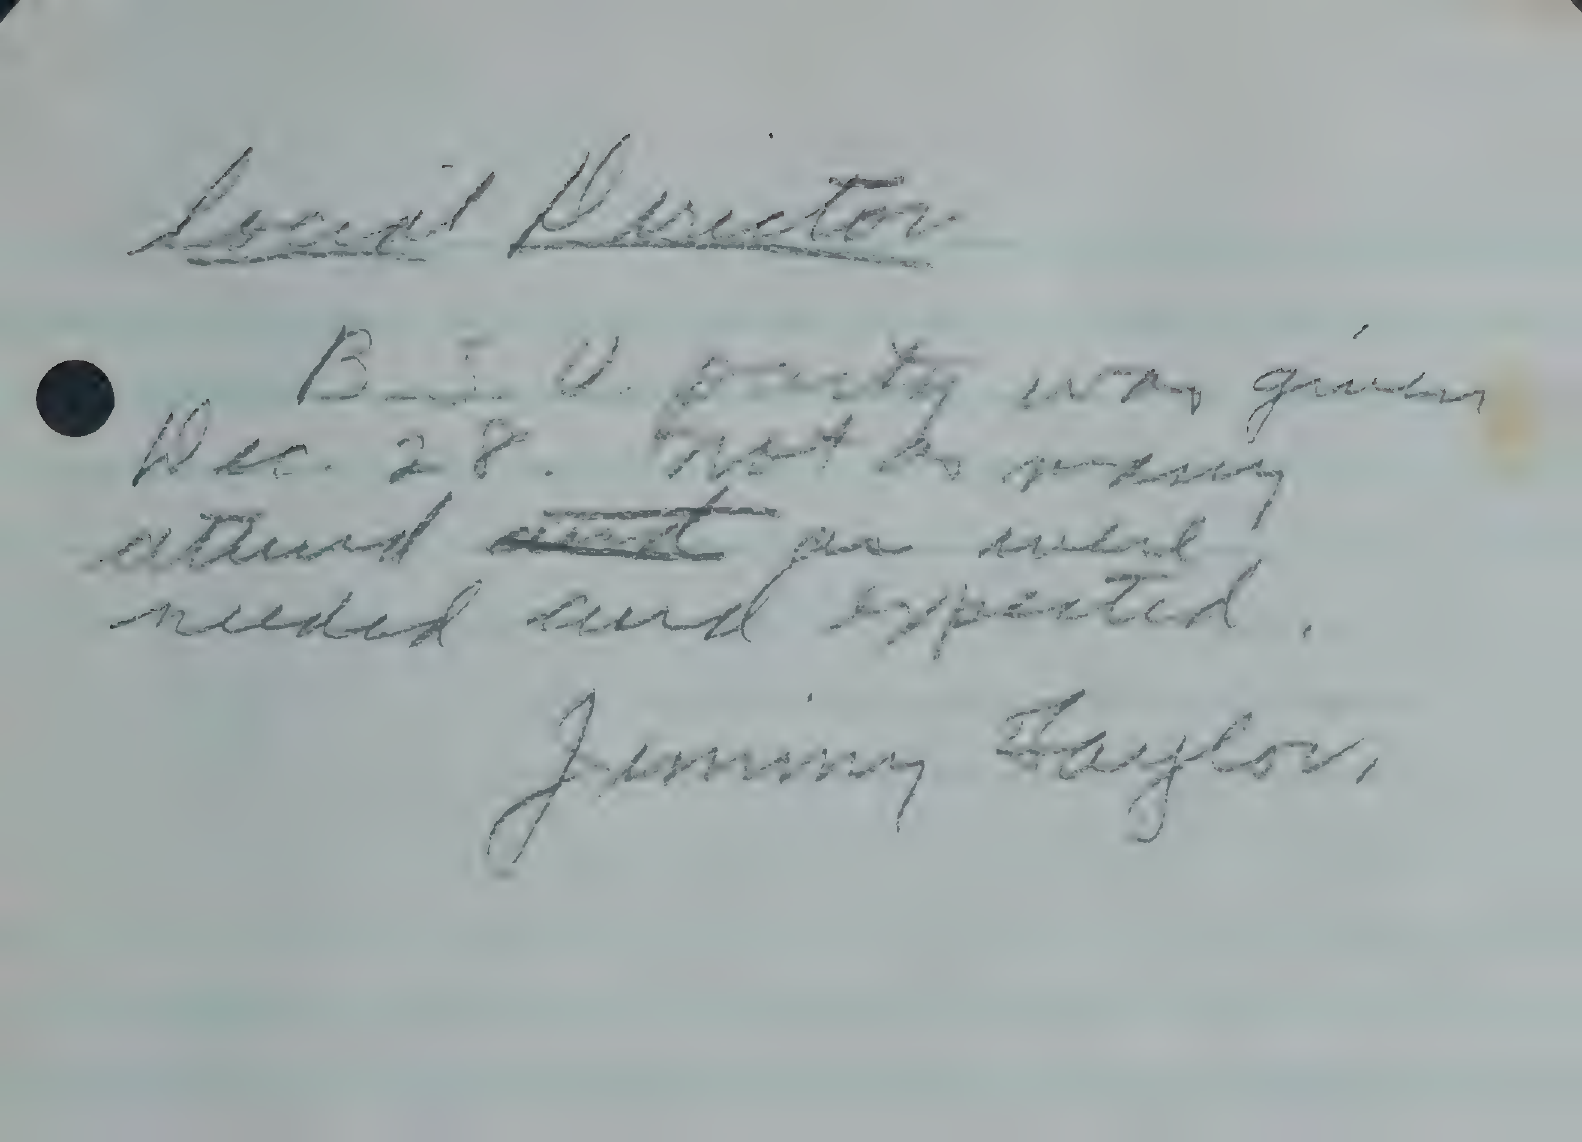 Social Director
B. T. U. party was given
Dec. 28. Not so many
attend as were
needed and expected.
Jimmy Taylor,